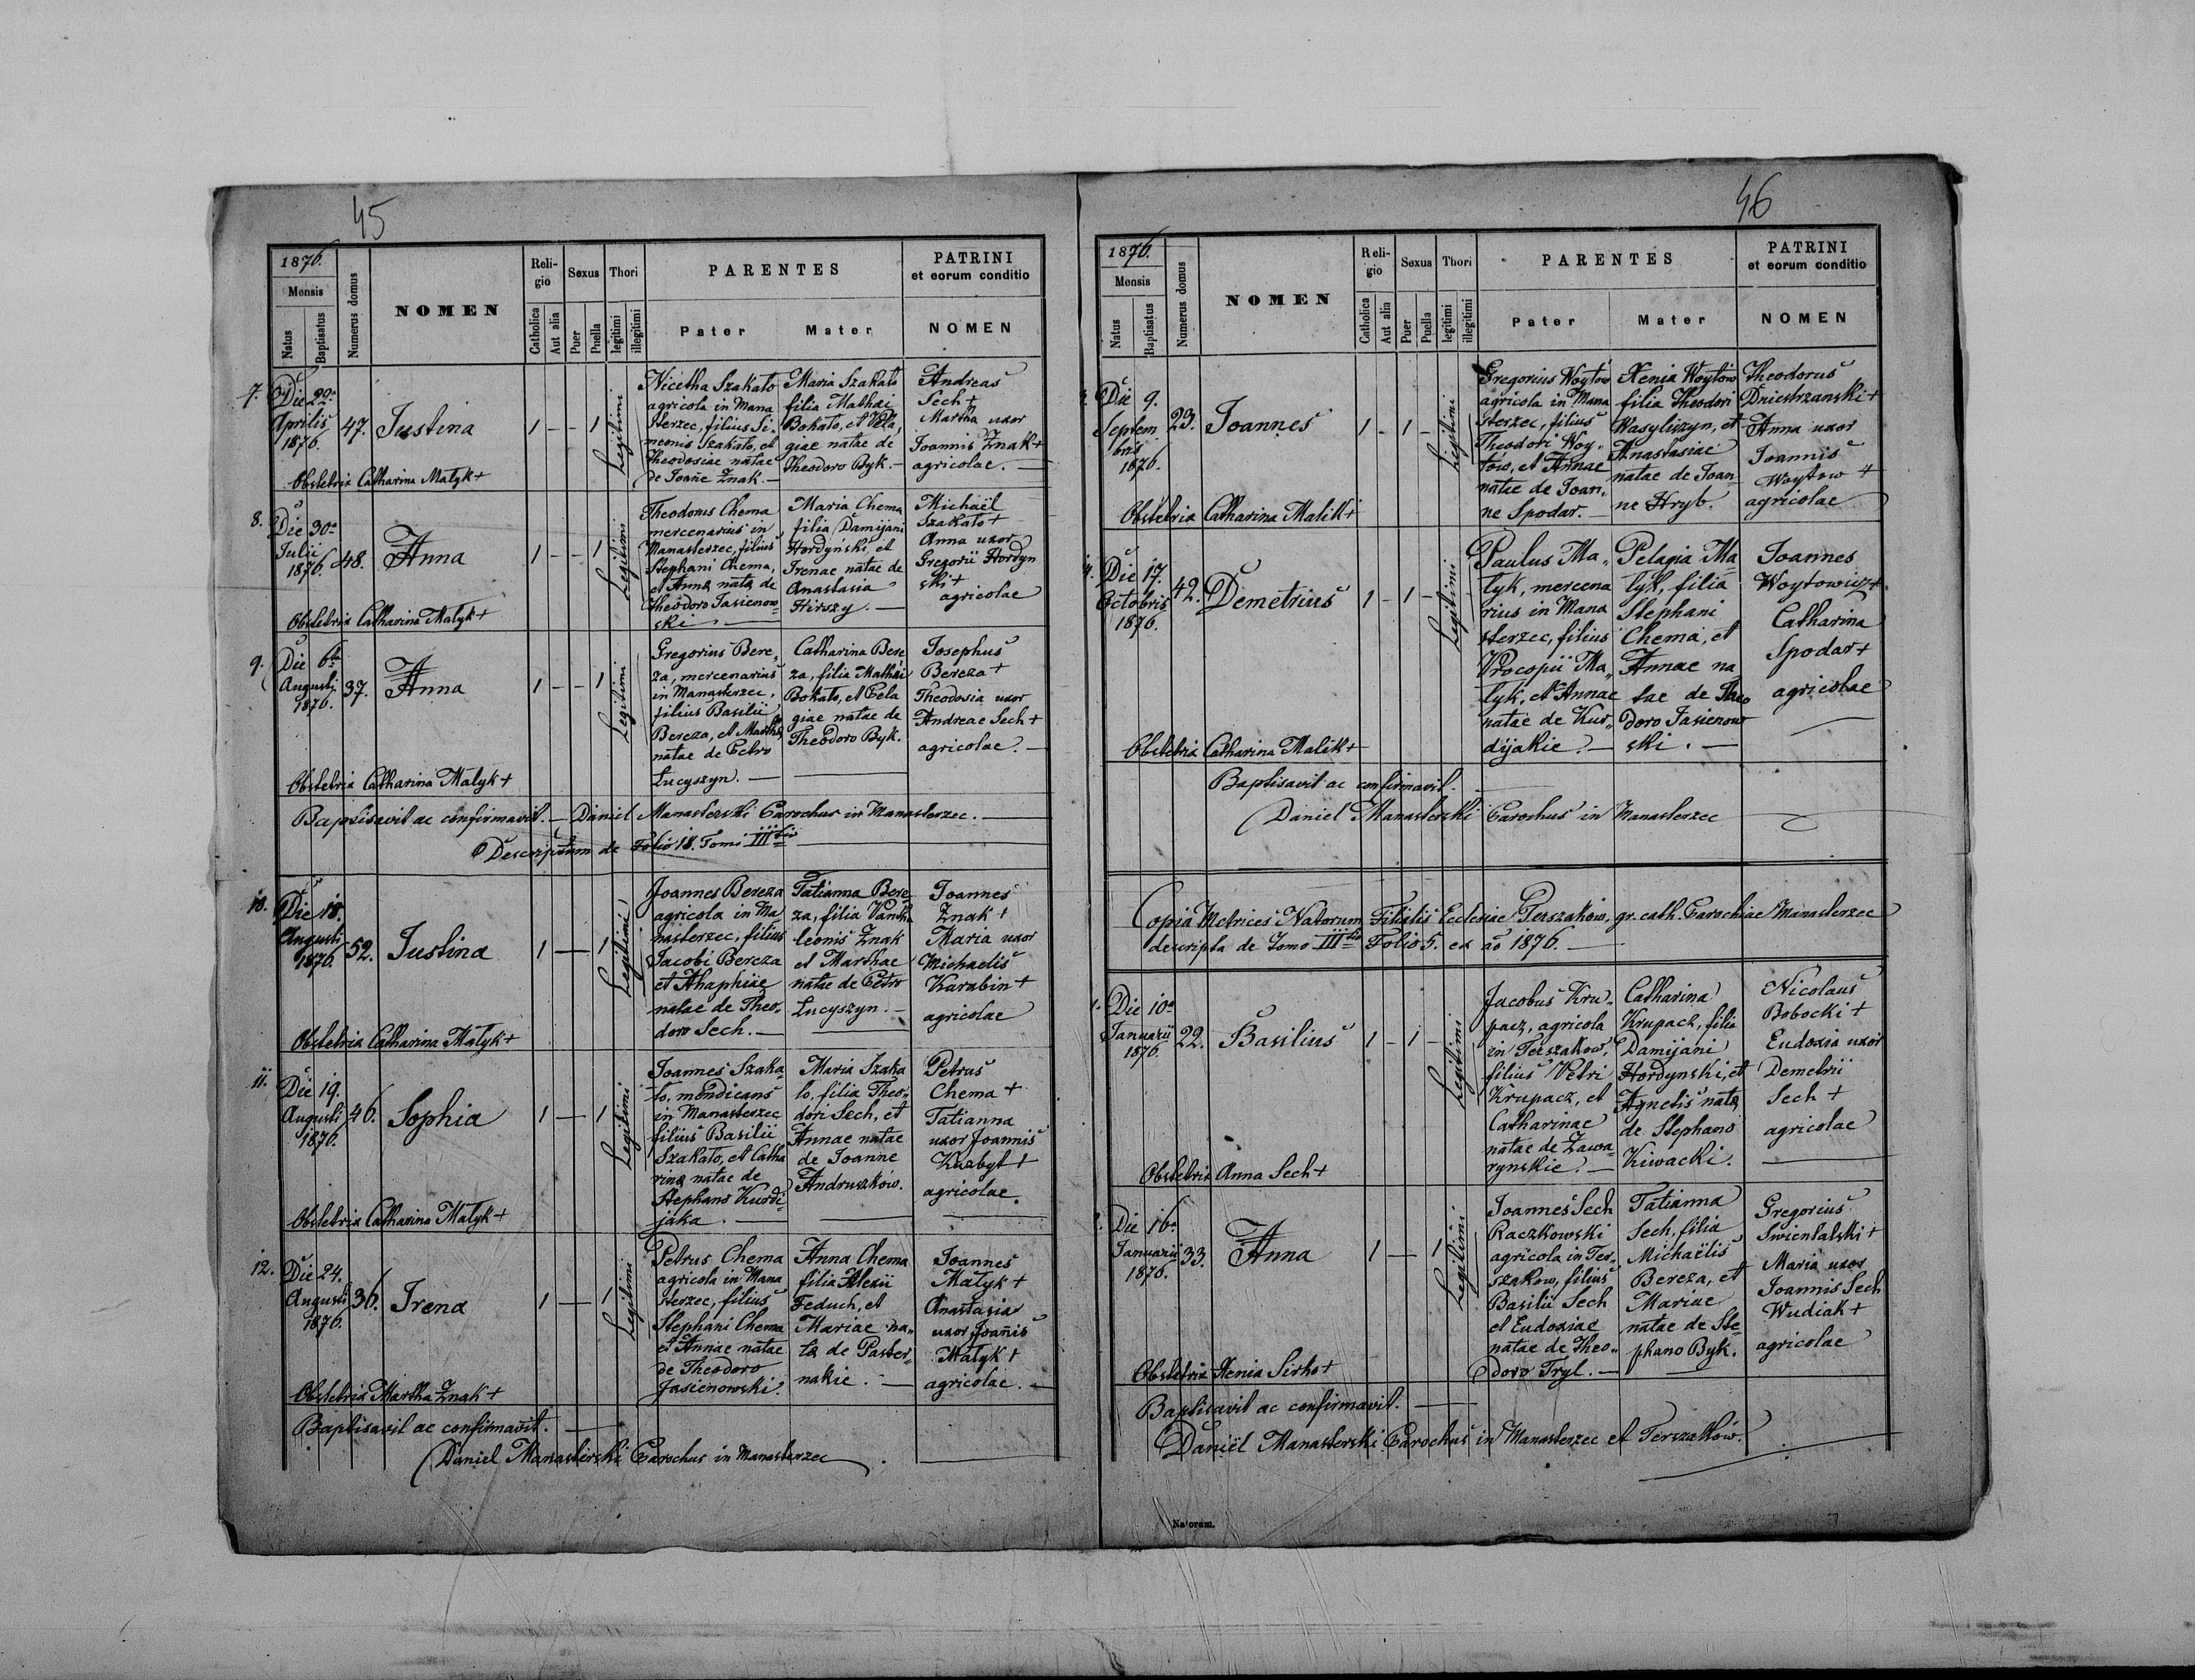 45
1876.
Mensis
Natus
Baptisatus
Numerus domus
NOMEN
Religio
Catholica
Aut alia
Sexus
Puer
Puella
Thori
legitimi
illegitimi
PARENTES
Pater
Mater
PATRINI
et eorum conditio
NOMEN
7. Die 29a
Aprilis
1876.
47. Justina
1 - - 1
Legitimi
Nicetha Szakało
agricola in Mana
sterzec, filius Si-
meonis Szakało, et
Theodosiae natae
de Joañe Znak. —
Maria Szakało
filia Mathai
Bokało, et Pela,
giae natae de
Theodoro Byk. —
Andreas
Sech +
Martha uxor
Joannis Znak +
agricolae. —
Obstetrix Catharina Małyk +
8. Die 30a
Julii
1876.
48. Anna
1 - - 1
Legitimi
Theodorus Chema
mercenarius in
Manasterzec, filius
Stephani Chema,
et Annae natae de
Theodoro Jasienow-
ski. —
Maria Chema
filia Damijani
Hordyński, et
Irenae natae de
Anastasia
Hirszy. —
Michaël
Szakało +
Anna uxor
Gregorii Hordyn
ski +
agricolae
Obstetrix Catharina Małyk +
9. Die 6ta
Augusti
1876.
37. Anna
1 - - 1
Legitimi
Gregorius Bere,
za, mercenarius
in Manasterzec,
filius Basilii
Bereza, et Marthae
natae de Petro
Łucyszyn. —
Catharina Bere,
za, filia Mathai
Bokało, et Pela
giae natae de
Theodoro Byk.
Josephus
Bereza +
Theodosia uxor
Andreae Sech +
agricolae. —
Obstetrix Catharina Małyk +
Baptisavit ac confirmavit. — Daniel Manasterski Parochus in Manasterzec. —
Descriptum de Folio 18. Tomi III tio
10. Die 18.
Augusti
1876.
52. Justina
1 — 1
Legitimi
Joannes Bereza
agricola in Ma
nasterzec, filius
Jacobi Bereza
et Ahaphiae
natae de Theo,
doro Sech. —
Tatianna Bere
za, filia Pante
leonis Znak
et Marthae
natae de Petro
Łucyszyn. —
Joannes
Znak +
Maria uxor
Michaelis
Karabin +
agricolae
Obstetrix Catharina Małyk +
11. Die 19.
Augusti
1876.
46. Sophia
1 — 1
Legitimi
Joannes Szaka-
ło, mendicans
in Manasterzec
filius Basilii
Szakało, et Catha
rinae natae de
Stephano Kurdi
jaka. —
Maria Szaka
ło, filia Theo-
dori Sech, et
Annae natae
de Joanne
Andruszków.
Petrus
Chema +
Tatianna
uxor Joannis
Kuzbyt +
agricolae.
Obstetrix Catharina Małyk +
12. Die 24.
Augusti
1876.
36. Irena
1 — 1
Legitimi
Petrus Chema
agricola in Mana
sterzec, filius
Stephani Chema
et Annae natae
de Theodoro
Jasienowski.
Anna Chema
filia Alexii
Feduch, et
Mariae na,
tae de Paster,
nakie. —
Joannes
Małyk +
Anastasia
uxor Joañis
Małyk +
agricolae. —
Obstetrix Martha Znak +
Baptisavit ac confirmavit. —
Daniel Manasterski Parochus in Manasterzec
46
1876.
Mensis
Natus
Baptisatus
Numerus domus
NOMEN
Religio
Catholica
Aut alia
Sexus
Puer
Puella
Thori
legitimi
illegitimi
PARENTES
Pater
Mater
PATRINI
et eorum conditio
NOMEN
Die 9.
Septem
bris
1876.
23. Joannes
1 - 1 -
Legitimi
Gregorius Woytów
agricola in Mana
sterzec, filius
Theodori Woy,
tów, et Annae
natae de Joan,
ne Spodar. —
Xenia Woytów
filia Theodori
Wasyliszyn, et
Anastasiae
natae de Joan-
ne Hryb.
Theodorus
Dniestrzanski +
Anna uxor
Joannis
Woytow +
agricolae
Obstetrix Catharina Malik +
4. Die 17.
Octobris
1876.
42. Demetrius
1 - 1 -
Legitimi
Paulus Ma,
łyk, mercena
rius in Mana
sterzec, filius
Procopii Ma,
łyk, et Annae
natae de Kur,
dijakie. —
Pelagia Ma
łyk, filia
Stephani
Chema, et
Annae na
tae de Theo
doro Jasienow
ski. —
Joannes
Woytowicz +
Catharina
Spodar +
agricolae
Obstetrix Catharina Malik +
Baptisavit ac confirmavit.
Daniel Manasterski Parochus in Manasterzec
Copia Metrices Natorum Filialis Ecclesiae Terszaków, gr. cath. Parochiae Manasterzec
descripta de Tomo III tio Folio 5. ex ao 1876. —
1. Die 10a
Januarii
1876.
22. Basilius
1 - 1 -
Legitimi
Jacobus Kru,
pacz, agricola
in Terszakow,
filius Petri
Krupacz, et
Catharinae
natae de Zawa
rynskie. —
Catharina
Krupacz, filia
Damijani
Hordynski, et
Agnetis natae
de Stephano
Kiwacki.
Nicolaus
Bobocki +
Eudoxia uxor
Demetrii
Sech +
agricolae
Obstetrix Anna Sech +
2. Die 16a
Januarii
1876.
33. Anna
1 — 1
Legitimi
Joannes Sech
Raczkowski
agricola in Ter-
szakow, filius
Basilii Sech
et Eudoxiae
natae de Theo,
doro Tryl. —
Tatianna
Sech, filia
Michaëlis
Bereza, et
Mariae
natae de Ste
phano Byk.
Gregorius
Swientalski +
Maria uxor
Joannis Sech
Wudiak +
agricolae
Obstetrix Xenia Sirko +
Baptisavit ac confirmavit. —
Daniël Manasterski Parochus in Manasterzec et Terszaków.
Natorum.